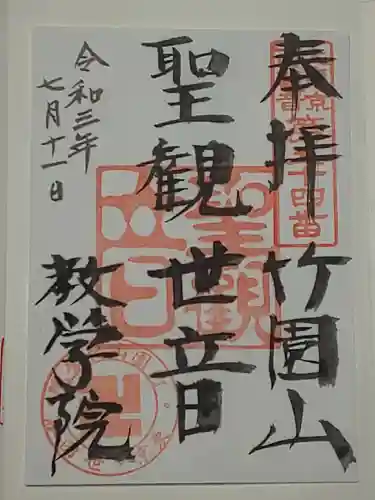 奉拝 竹園山
聖観世音
教学院
令和三年
七月十一日
聖観世音